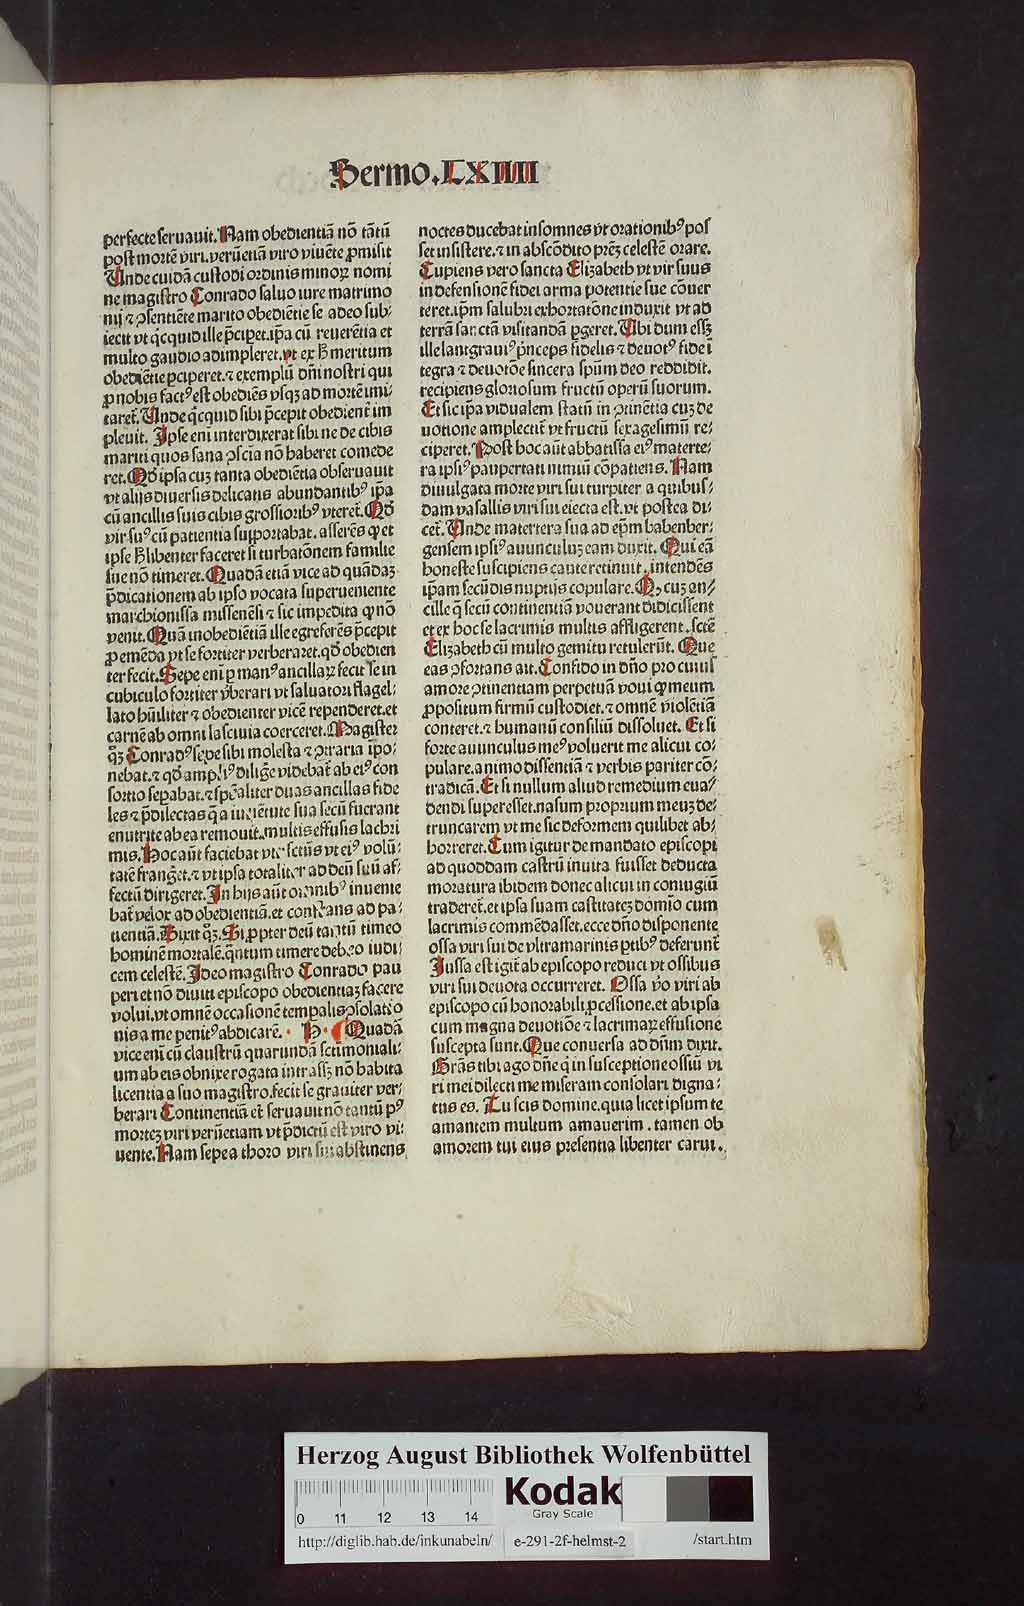 Sermo.LXIIII
perfecte seruauit. Nam obedientiā nō tātū
post mortē viri. verūetiā viro viuēte ꝓmisit
Unde cuidā custodi ordinis minoꝝ nomi
ne magistro Conrado saluo iure matrimo
nij ⁊ ↄsentiēte marito obediētie se adeo sub⸗
iecit vt q̇cquid ille p̄ciperet. ip̄a cū reuerētia et
multo gaudio adimpleret. vt ex H̄ meritum
obediētie ꝑciperet. ⁊ exemplū dn̄i nostri qui
ꝓ nobis factꝰ est obediēs vsqꝫ ad mortē imi⸗
taret̄. Unde q̇cquid sibi p̄cepit obedient̄ im
pleuit. Ipse eni interdixerat sibi ne de cibis
mariti quos sana ↄscia nō haberet comede
ret. Qd̄ ipsa cuꝫ tanta obediētia obseruauit
vt alijs diuersis delicatis abundantibꝰ ip̄a
cū ancillis suis cibis grossioribꝰ vteret̄. Qd̄
vir suꝰ cū patientia supportabat. asserēs ꝙ et
ipse H̄ libenter faceret si turbatōnem familie
sue nō timeret. Quadā etiā vice ad quādaꝫ
p̄dicationem ab ipso vocata superueniente
marchionissa missenēsi ⁊ sic impedita ꝙ nō
venit. Quā inobediētiā ille egre ferēs p̄cepit
ꝓ emēda vt se fortiter verberaret. qd̄ obedien
ter fecit. Sepe eni ꝑ manꝰ ancillaꝝ fecit se in
cubiculo fortiter v̄berari vt saluatori flagel⸗
lato hūiliter ⁊ obedienter vicē rependeret. et
carnē ab omni lasciuia coerceret. Magister
q̄ꝫ Conradꝰ sepe sibi molesta ⁊ ↄtraria īpo⸗
nebat. ⁊ qd̄ ampliꝰ diligē videbat̄ ab eiꝰ con
sortio sepabat. ⁊ spēaliter duas ancillas fide
les ⁊ p̄dilectas q̄ a iuuētute sua secū fuerant
enutrite ab ea remouit. multis effusis lachri
mis. Hoc aūt faciebat vir sctūs vt eiꝰ volū⸗
tatē franḡet. ⁊ vt ipsa totaliter ad deū suū af⸗
fectū dirigeret. In hijs aūt omnibꝰ inuenie
bat̄ velox ad obedientiā. et constans ad pa⸗
tientiā. Dixit q̄ꝫ. Si ꝓpter deū tantū timeo
hominem mortalē. q̄ntum timere debeo iudi⸗
cem celestē. Ideo magistro Conrado pau
peri et nō diuiti episcopo obedientiaꝫ facere
volui. vt omnē occasionē temꝑalis ↄsolatio
nis a me penitꝰ abdicarē. P. Quadā
vice eni cū claustrū quarundā sctīmoniali⸗
um ab eis obnixe rogata intrassꝫ nō habita
licentia a suo magistro. fecit se grauiter ver⸗
berari Continentiā et̄ seruauit nō tantū pꝰ
morteꝫ viri verūetiam vt p̄dictū est viro vi⸗
uente. Nam sepe a thoro viri sui abstinens
noctes ducebat insomnes vt orationibꝰ pos
set insistere. ⁊ in abscōdito prēꝫ celestē orare.
Cupiens vero sancta Elizabeth vt vir suus
in defensionē fidei arma potentie sue cōuer
teret. ip̄m salubri exhortatōne induxit vt ad
terrā sanctā visitandā ꝑgeret. Ubi dum essꝫ
ille lantgrauiꝰ p̄nceps fidelis ⁊ deuotꝰ fide ī
tegra ⁊ deuotōe sincera spūm deo reddidit.
recipiens gloriosum fructū operū suorum.
Et sic ip̄a vidualem statū in ↄtinētia cuꝫ de
uotione amplectit̄ vt fructū sexagesimū re⸗
ciperet. Post hoc aūt abbatissa eiꝰ materte⸗
ra ipsiꝰ paupertati nimiū cōpatiens. Nam
diuulgata morte viri sui turpiter a quibus⸗
dam vasallis viri sui eiecta est. vt postea di⸗
cet̄. Unde matertera sua ad ep̄m babenber⸗
gensem ipsiꝰ auunculuꝫ eam duxit. Qui eā
honeste suscipiens caute retinuit. intendēs
ip̄am secūdis nuptijs copulare. Qꝫ cuꝫ an⸗
cille q̄ secū continentiā vouerant didicissent
et ex hoc se lacrimis multis affligerent. sctē
Elizabeth cū multo gemitu retulerūt. Que
eas ↄfortans ait. Confido in dn̄o pro cuius
amore ↄtinentiam perpetuā voui ꝙ meum
ꝓpositum firmū custodiet. ⁊ omnē violētiā
conteret. ⁊ humanū consiliū dissoluet. Et si
forte auunculus meꝰ voluerit me alicui co⸗
pulare. animo dissentiā ⁊ verbis pariter cō⸗
tradicā. Et si nullum aliud remedium eua⸗
dendi superesset. nasum proprium meuꝫ de⸗
truncarem vt me sic deformem quilibet ab⸗
horreret. Cum igitur de mandato episcopi
ad quoddam castrū inuita fuisset deducta
moratura ibidem donec alicui in coniugiū
traderet̄. et ipsa suam castitateꝫ domīo cum
lacrimis commēdasset. ecce dn̄o disponente
ossa viri sui de vltramarinis ꝑtibꝰ deferunt̄
Jussa est igit̄ ab episcopo reduci vt ossibus
viri sui deuota occurreret. Ossa v̄o viri ab
episcopo cū honorabili ꝓcessione. et ab ipsa
cum magna deuotiōe ⁊ lacrimaꝝ effusione
suscepta sunt. Que conuersa ad dn̄m dixit.
Grās tibi ago dn̄e q̇ in susceptione ossiū vi
ri mei dilecti me miseram consolari digna⸗
tus es. Tu scis domine. quia licet ipsum te
amantem multum amauerim. tamen ob
amorem tui eius presentia libenter carui.
Herzog August Bibliothek Wolfenbüttel
Kodak
Gray Scale
0 11 12 13 14
http://diglib.hab.de/inkunabeln/ e-291-2f-helmst-2 /start.htm